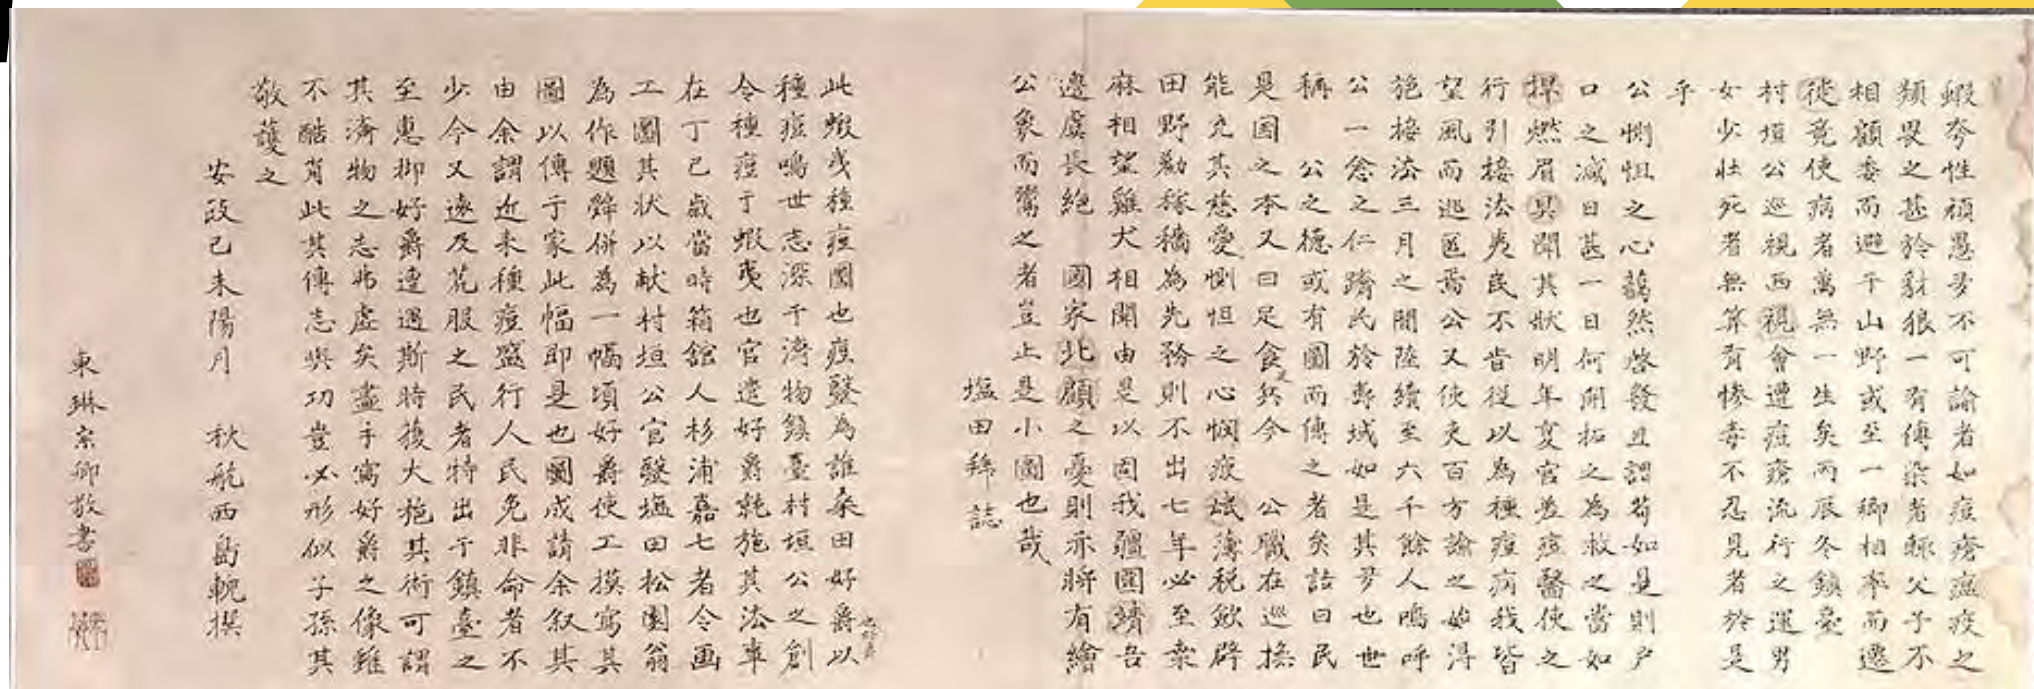 蝦夸性頑愚多不可諭者如痘瘡瘟疫之
類畏之甚於豺狼一有傳染者輙父子不
相顧委而避于山野或至一鄉相率而遷
徙竟使病者萬無一生矣丙辰冬鎮臺
村垣公巡視西視會遭痘瘡流行之運男
女少壯死者無算有慘毒不忍見者於是
乎
公惻怛之心藹然啓發且謂苟如是則戶
口之減日甚一日何開拓之為救之當如
捍燃眉具聞其狀明年夏官差痘醫使之
行引接法夷民不肯從以為種痘病我皆
望風而逃匿焉公又使吏百方諭之始得
施接法三月之間陸續至六千餘人嗚呼
公一念之仁躋民於壽域如是其多也世
稱 公之德或有圖而傳之者矣詰曰民
是国之本又曰足食足兵今 公職在巡撫
能充其慈愛惻怛之心憫疲氓薄税歛辟
田野勸稼穡為先務則不出七年必至衆
麻相望雞犬相聞由是以固我疆圉靖吾
邊虞長絶 國家北顧之憂則亦將有繪
公象而鬻之者豈止是小圖也哉
塩田穉誌
此蝦夷種痘圖也痘醫為誰桑田好爵以
種痘鳴世志深于濟物鎮臺村垣公之創
令種痘于蝦夷也官遣好爵施其法事
在丁巳歳當時箱舘人杉浦嘉七者令画
工圖其状以献村垣公官醫塩田松園翁
為作題辞併為一幅頃好爵使工摸寫其
圖以傳于家此幅即是也圖成請余叙其
由余謂近来種痘盛行人民免非命者不
少今又遠及荒服之民者特出于鎮臺之
至恵抑好爵遭遇斯時獲大施其術可謂
其濟物之志弗虚矣畫手寫好爵之像雖
不酷肖此其傳志與功豈必形似子孫其
敬護之
安政己未陽月 秋航西島輗撰
東琳宗卿敬書